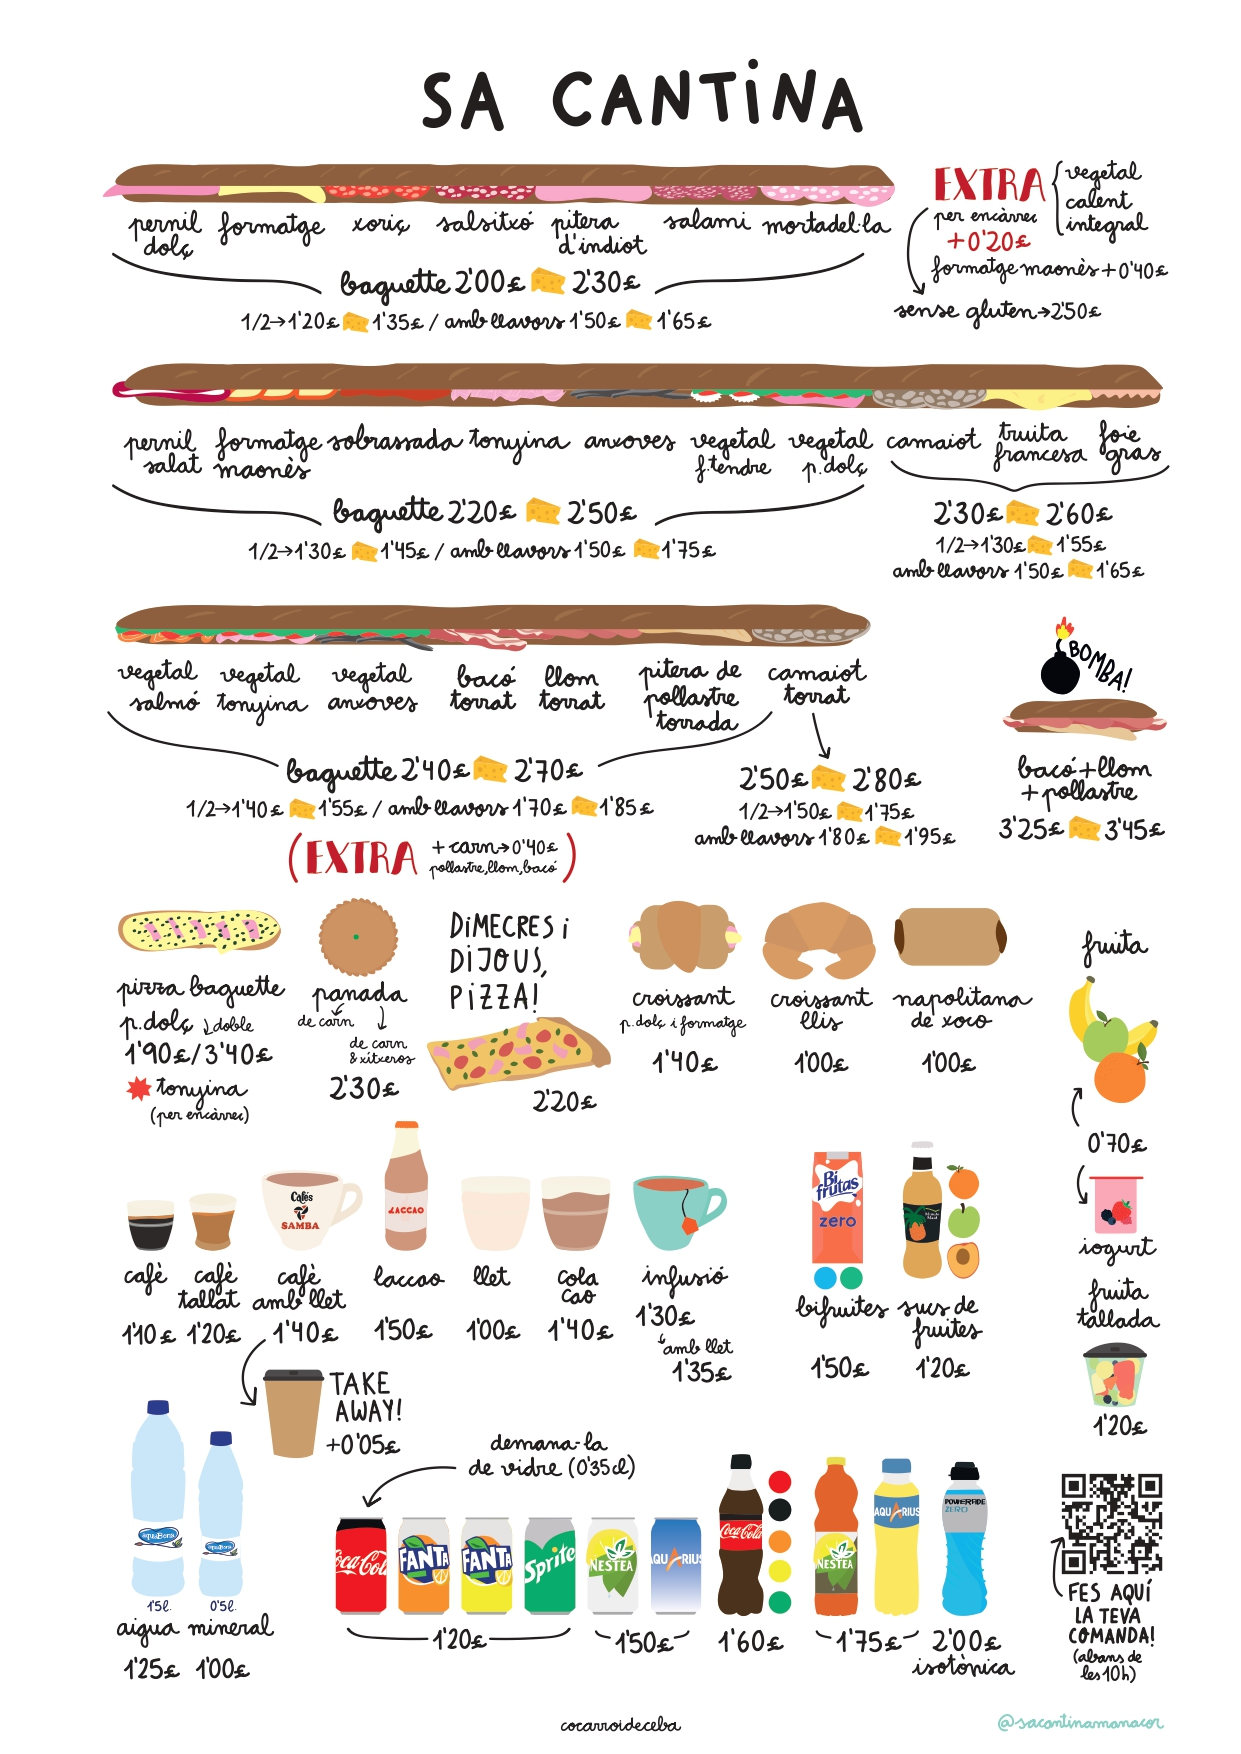 SA CANTINA
pernil dolç
formatge
xoriç
salsitxó
pitera d'indiot
salami
mortadel·la
baguette 2'00€ 2'30€
1/2→1'20€ 1'35€ / amb llavors 1'50€ 1'65€
EXTRA
per encàrrec
+0'20€
vegetal
calent
integral
formatge maonès +0'40€
sense gluten→2'50€
pernil salat
formatge maonès
sobrassada
tonyina
anxoves
vegetal f.tendre
vegetal p.dolç
camaiot
truita francesa
foie gras
baguette 2'20€ 2'50€
1/2→1'30€ 1'45€ / amb llavors 1'50€ 1'75€
2'30€ 2'60€
1/2→1'30€ 1'55€
amb llavors 1'50€ 1'65€
vegetal salmó
vegetal tonyina
vegetal anxoves
bacó torrat
llom torrat
pitera de pollastre torrada
camaiot torrat
baguette 2'40€ 2'70€
1/2→1'40€ 1'55€ / amb llavors 1'70€ 1'85€
(EXTRA + carn→0'40€
pollastre, llom, bacó)
2'50€ 2'80€
1/2→1'50€ 1'75€
amb llavors 1'80€ 1'95€
BOMBA!
bacó+llom
+pollastre
3'25€ 3'45€
pizza baguette
p.dolç doble
1'90€/3'40€
tonyina
(per encàrrec)
panada
de carn
de carn
& xitxeros
2'30€
DIMECRES i
DIJOUS,
PIZZA!
2'20€
croissant
p.dolç i formatge
1'40€
croissant
llis
1'00€
napolitana
de xoco
1'00€
fruita
0'70€
iogurt
fruita
tallada
1'20€
Cafés
SAMBA
LACCAO
cafè
1'10€
cafè
tallat
1'20€
cafè
amb llet
1'40€
laccao
1'50€
llet
1'00€
cola
cao
1'40€
infusió
1'30€
amb llet
1'35€
Bi
frutas
zero
bifruites
1'50€
sucs de
fruites
1'20€
TAKE
AWAY!
+0'05€
aquaBona
aquaBona
1'5l.
0'5l.
aigua mineral
1'25€ 1'00€
demana-la
de vidre (0'35cl)
Coca-Cola
FANTA
FANTA
Sprite
NESTEA
AQUARIUS
Coca-Cola
NESTEA
AQUARIUS
POWERADE
ZERO
1'20€
1'50€
1'60€
1'75€
2'00€
isotònica
FES AQUÍ
LA TEVA
COMANDA!
(abans de
les 10h)
cocarroideceba
@sacantinamanacor